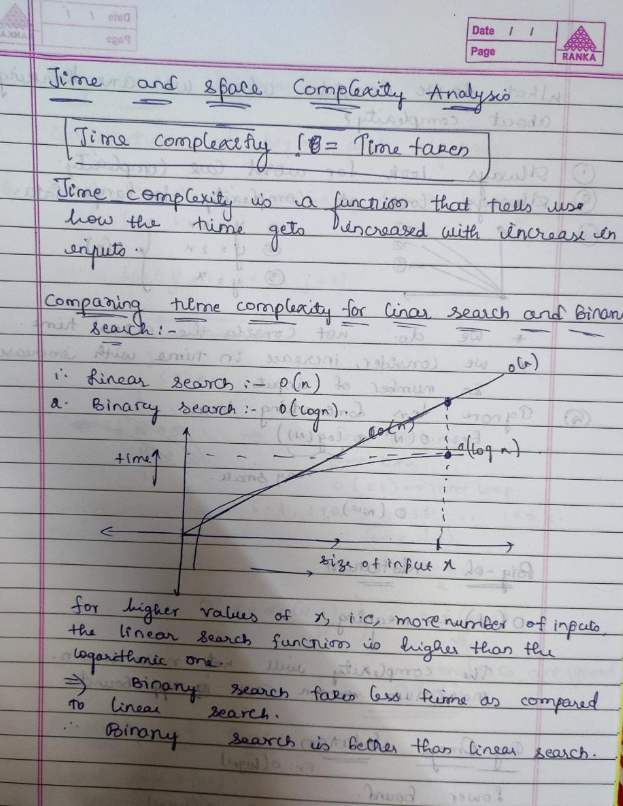 Date / /
Page
RANKA
Time and space Complexity Analysis
Time complexity != Time taken
Time complexity is a function that tells use
how the time gets increased with increase in
inputs.
Comparing time complexity for linar search and Binary
search :-
1. Linear search :- O(n)
2. Binary search :- O(logn).
O(n)
O(n)
O(log n)
time↑
size of input x
for higher values of x, i.e, more number of inputs,
the linear search function is higher than the
logarithmic one.
⇒ Binary search takes less time as compared
to linear search.
∴ Binary search is better than linear search.